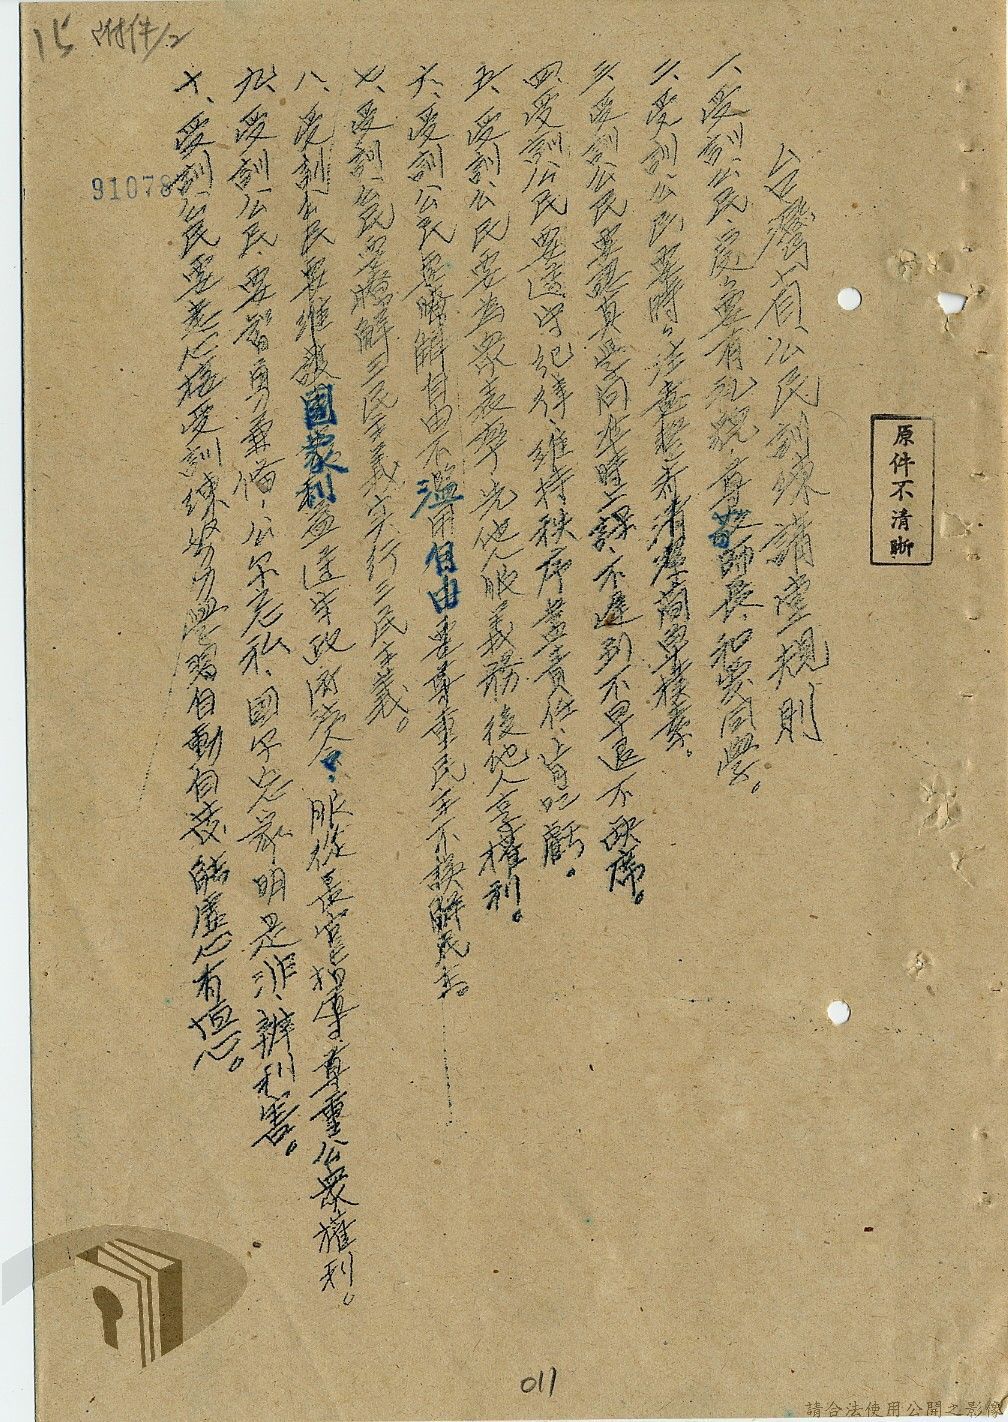 15 附件/2
原件不清晰
台灣省公民訓練講堂規則
一、受訓公民、定要有礼貌、尊敬師長、和愛同學。
二、受訓公民要時々注意整齊清潔簡單樸素。
三、受訓公民要認真學問準時上課、不遲到不早退不缺席。
四、受訓公民要遵守紀律、維持秩序盡責任、肯吃虧。
五、受訓公民要為眾表率先他人服義務後他人享權利。
六、受訓公民要瞭解自由不濫用自由要尊重民主不誤解民主。
七、受訓公民要瞭解三民主義实行三民主義。
八、受訓公民要維護國家利益遵守政府法令、服從長官指導、尊重公眾權利。
九、受訓公民、要智勇兼備、公尔忘私、國尔忘家明是非、辨利害。
十、受訓公民要悉心接受訓練努力學習自動自發能虛心有恒心。
91078
011
請合法使用公開之影像